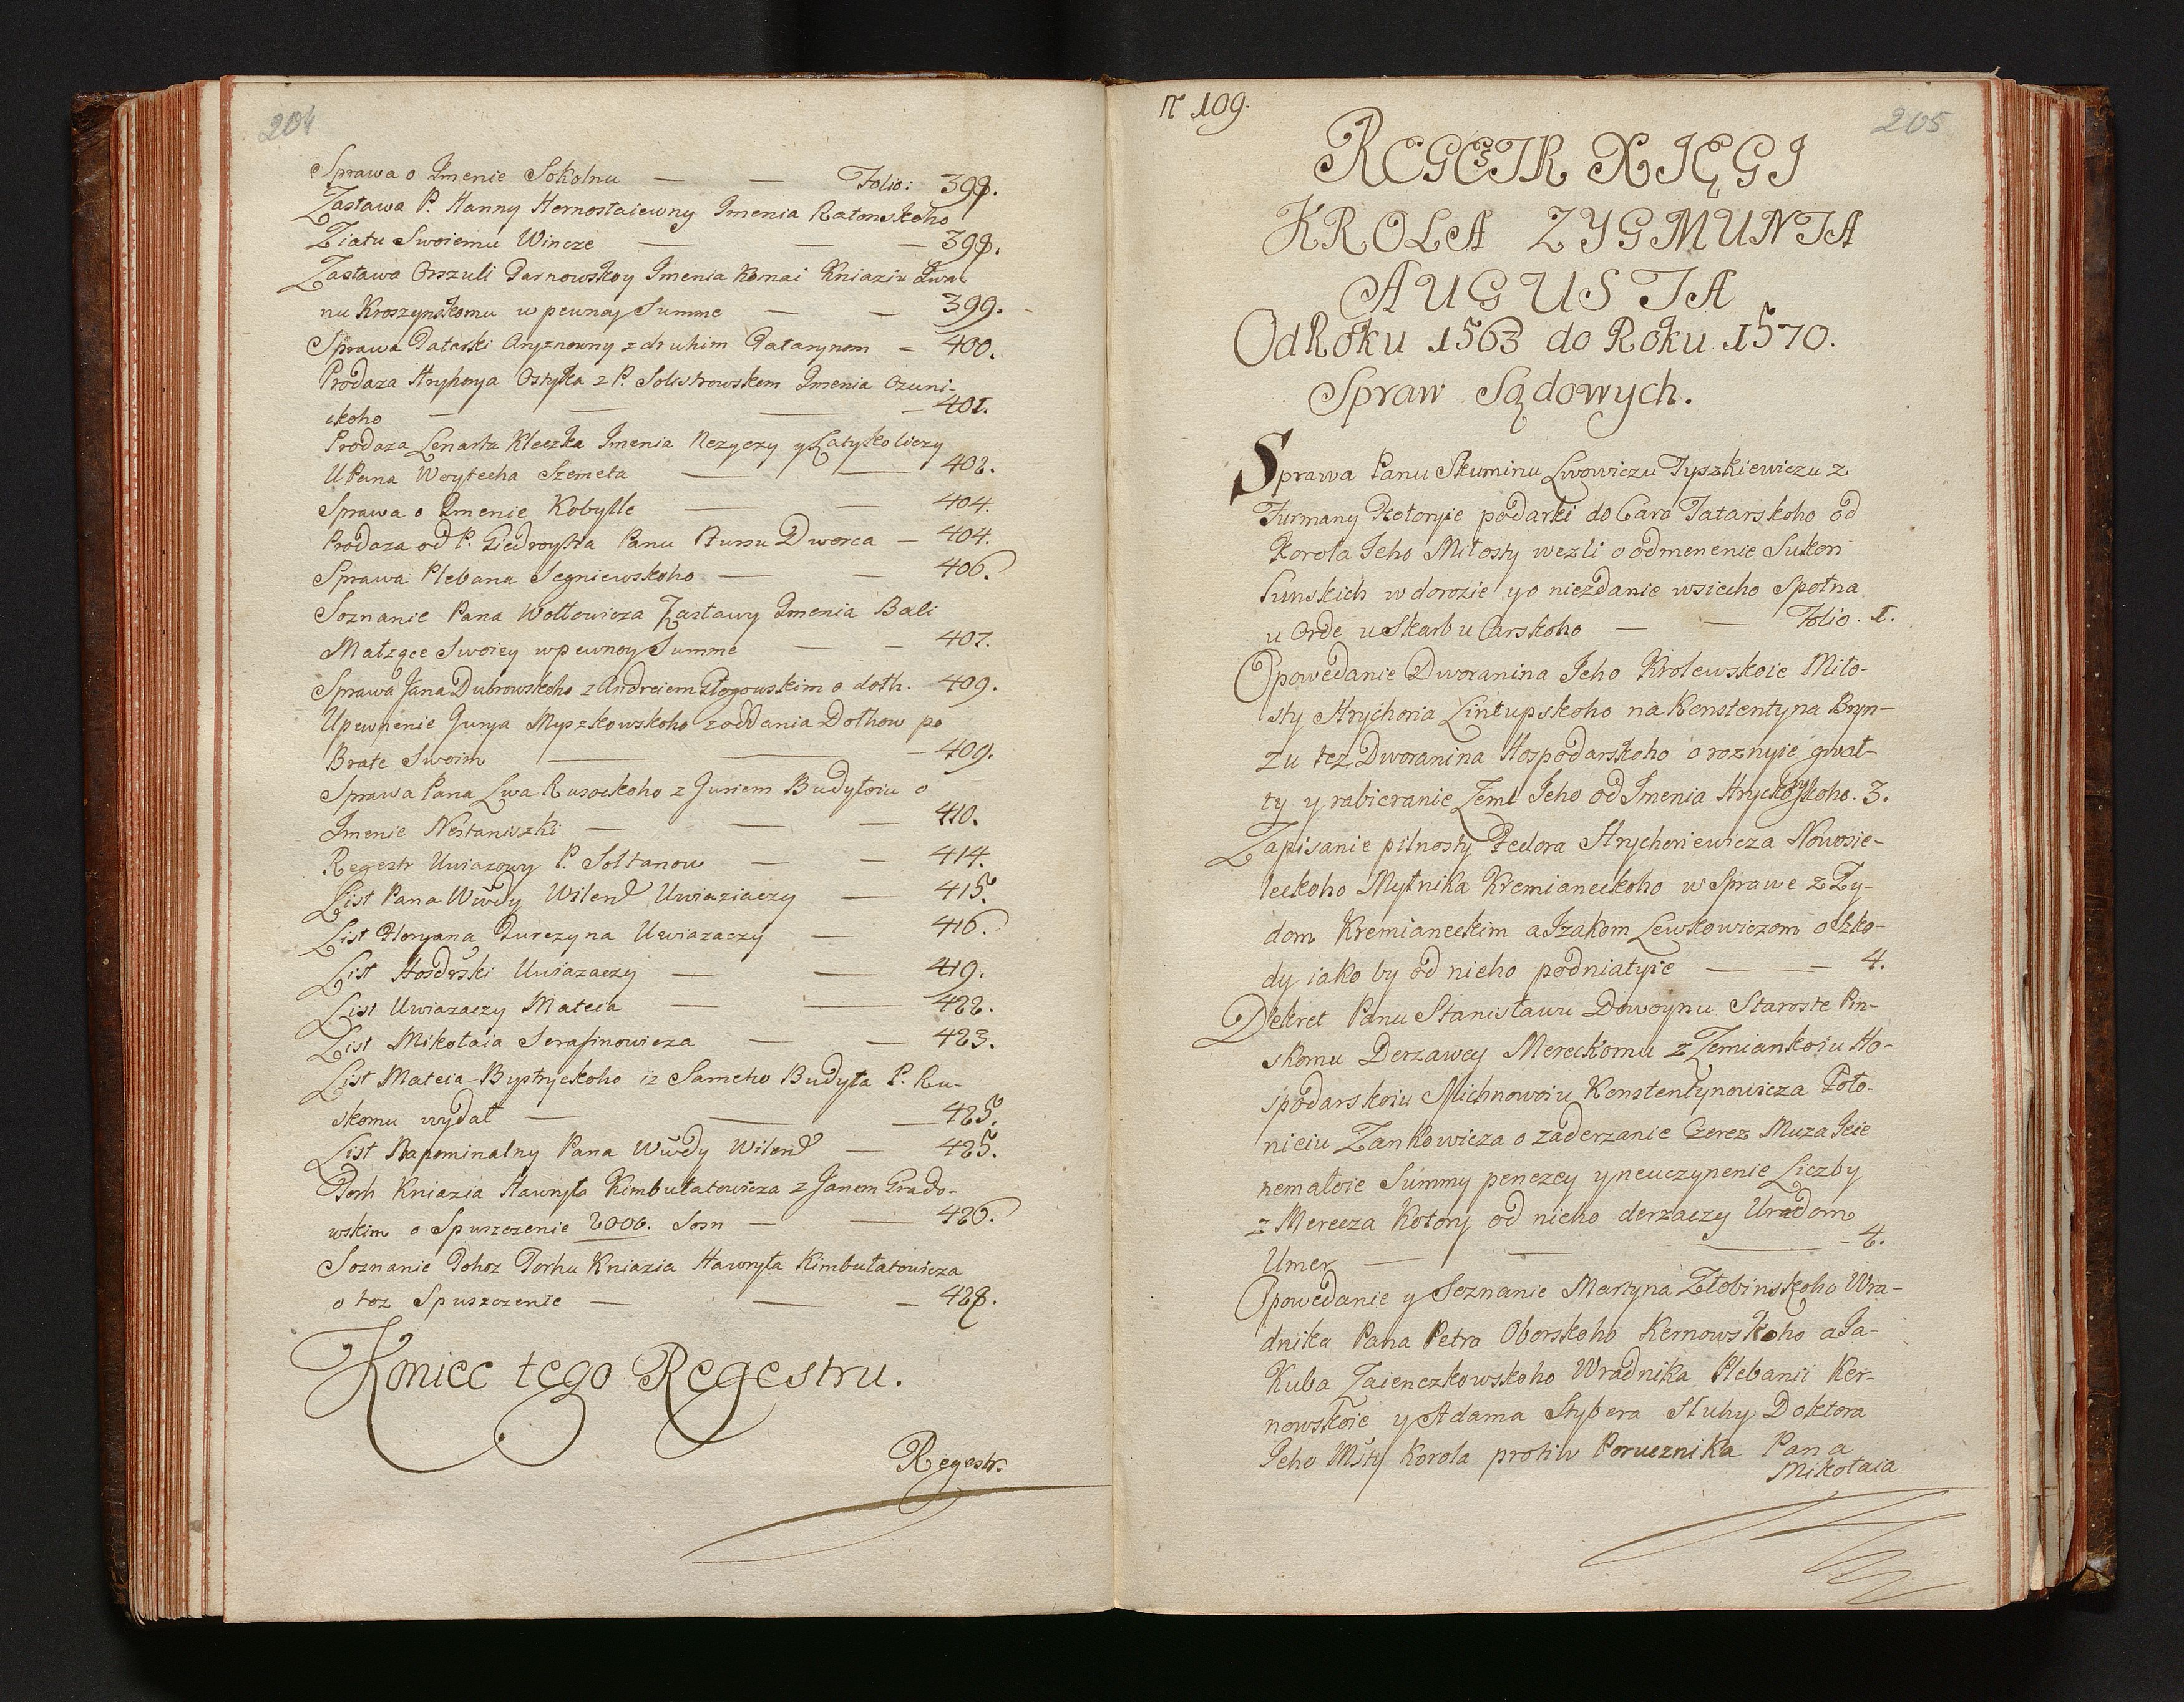 204
Sprawa o Imenie Sokolnu — — Folio: 398.
Zastawa P. Hanny Hernostaiewny Imenia Ratomskoho
Ziatu Swoiemu Wincze — — — 398.
Zastawa Orszuli Darnowskoy Imenia Komai Kniaziu Iwa-
nu Kroszynskomu w pewnoy Summe — — 399.
Sprawa Tatarki Aryznowny z druhim Tatarynom — 400.
Prodaza Hryhorya Ostyka z P. Solistrowskem Imenia Ozuni-
ckoho — — — — 401.
Prodaza Lenarta Kleczka Imenia Nezyczy y Latyskoliczy
U Pana Woytecha Szemeta — — 402.
Sprawa o Imenie Kobylle — — 404.
Prodaza od P. Giedroytia Panu Bursu Dworca — 404.
Sprawa Plebana Segniewskoho — — 406.
Soznanie Pana Wollowicza Zastawy Imenia Bali
Małzące Swoiey w pewnoy Summe — — 407.
Sprawa Jana Dubrowskoho z Andreiem Głogowskim o dolh. 409.
Upewnenie Jurya Myszkowskoho z oddania Dolhow po
Brate Swoim — — — 409.
Sprawa Pana Lwa Rusockoho z Juriem Budyłoiu o
Imenie Nestaniszki — — — 410.
Regestr Uwiazczy P. Sołtanow — — 414.
List Pana Wwdy Wilend Uwiaziaczy — 415.
List Floryana Turczyna Uwiazaczy — 416.
List Hosdrski Uwiazaczy — — 419.
List Uwiazaczy Mateia — — 422.
List Mikołaia Serafinowicza — — 423.
List Mateia Bystryckoho iz Samcho Budyła P. Ru-
skomu wydał — — — 425.
List Napominalny Pana Wwdy Wilend — 425.
Torh Kniazia Hawryła Kimbułatowicza z Janom Grado-
wskim o Spuszczenie 2000. Sosn — — 426.
Soznanie Tohoz Torhu Kniazia Hawryła Kimbułatowicza
o toz Spuszczenie — — — 428.
Koniec tego Regestru.
Regestr.
n 109.
205
REGESTR XIĘGI
KROLA ZYGMUNTA
AUGUSTA
Od Roku 1563 do Roku 1570.
Spraw Sądowych.
Sprawa Panu Skuminu Lwowiczu Tyszkiewiczu z
Furmany Kotoryie podarki do Cara Tatarskoho od
Korola Jeho Miłosty wezli o odmenenie Sukon
Lunskich w dorozie y o niezdanie wsiecho Społna
u Orde u Skarb u Carskoho — — Folio. 1.
Opowedanie Dworanina Jeho Krolewskoie Miło-
sty Hryhoria Lintupskoho na Konstentyna Bryn-
zu tez Dworanina Hospodarskoho o roznyie gwał-
ty y rabieranie Zeml Jeho od Imenia Hryckoyskoho. 3.
Zapisanie pilnosty Fedora Hrychoriewicza Nowosie-
leckoho Mytnika Kremianeckoho w Sprawe z Zy-
dom Kremianeckim a Izakom Lewkowiczom o Szko-
dy iako by od nieho podniatyie — — 4.
Dekret Panu Stanisławu Dowoynu Staroste Pin-
skomu Derzawcy Mereckomu z Zemiankoiu Ho-
spodarskoiu Michnowoiu Konstentynowicza Poło-
nieiu Zankowicza o zaderzanie Czerez Muza Jeie
nemałoie Summy penezey y neuczynenie Liczby
z Merecza Kotory od nieho derzaczy Uradom
Umer — — — 4.
Opowedanie y Soznanie Martyna Złobinskoho Wra-
dnika Pana Petra Oborskoho Kernowskoho a Ja-
Kuba Zaienczkowskoho Wradnika Plebanii Ker-
nowskoie y Adama Stybera Sluhy Doktora
Jeho Msty Korola protiw Porucznika Pana
Mikołaia